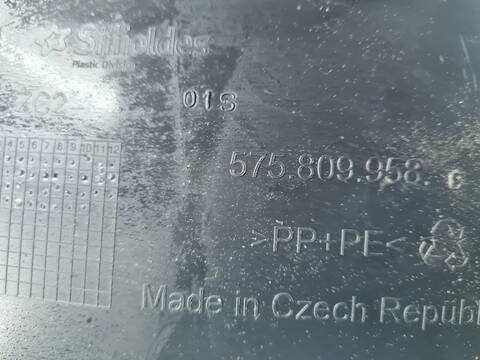 Simoldes
Plastic Division
01S
4 5 6 7 8 9 10 11 12
575.809.958. C
>PP+PE<
Made in Czech Republi